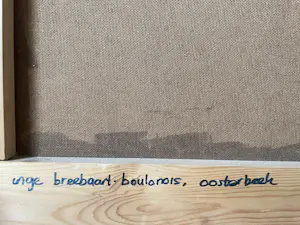 inge breebaart-boulonois, oosterbeek